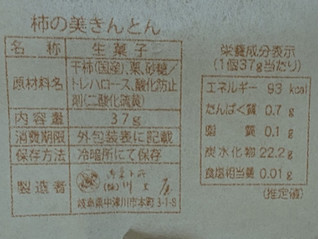 柿の美きんとん
名称 生菓子
原材料名 干柿(国産)、栗、砂糖/
トレハロース、酸化防止
剤(二酸化硫黄)
内容量 37g
消費期限 外包装表に記載
保存方法 冷暗所にて保存
製造者 (株)川上屋
岐阜県中津川市本町3-1-8
栄養成分表示
(1個37g当たり)
エネルギー 93 kcal
たんぱく質 0.7 g
脂質 0.1 g
炭水化物 22.2g
食塩相当量 0.01g
(推定値)